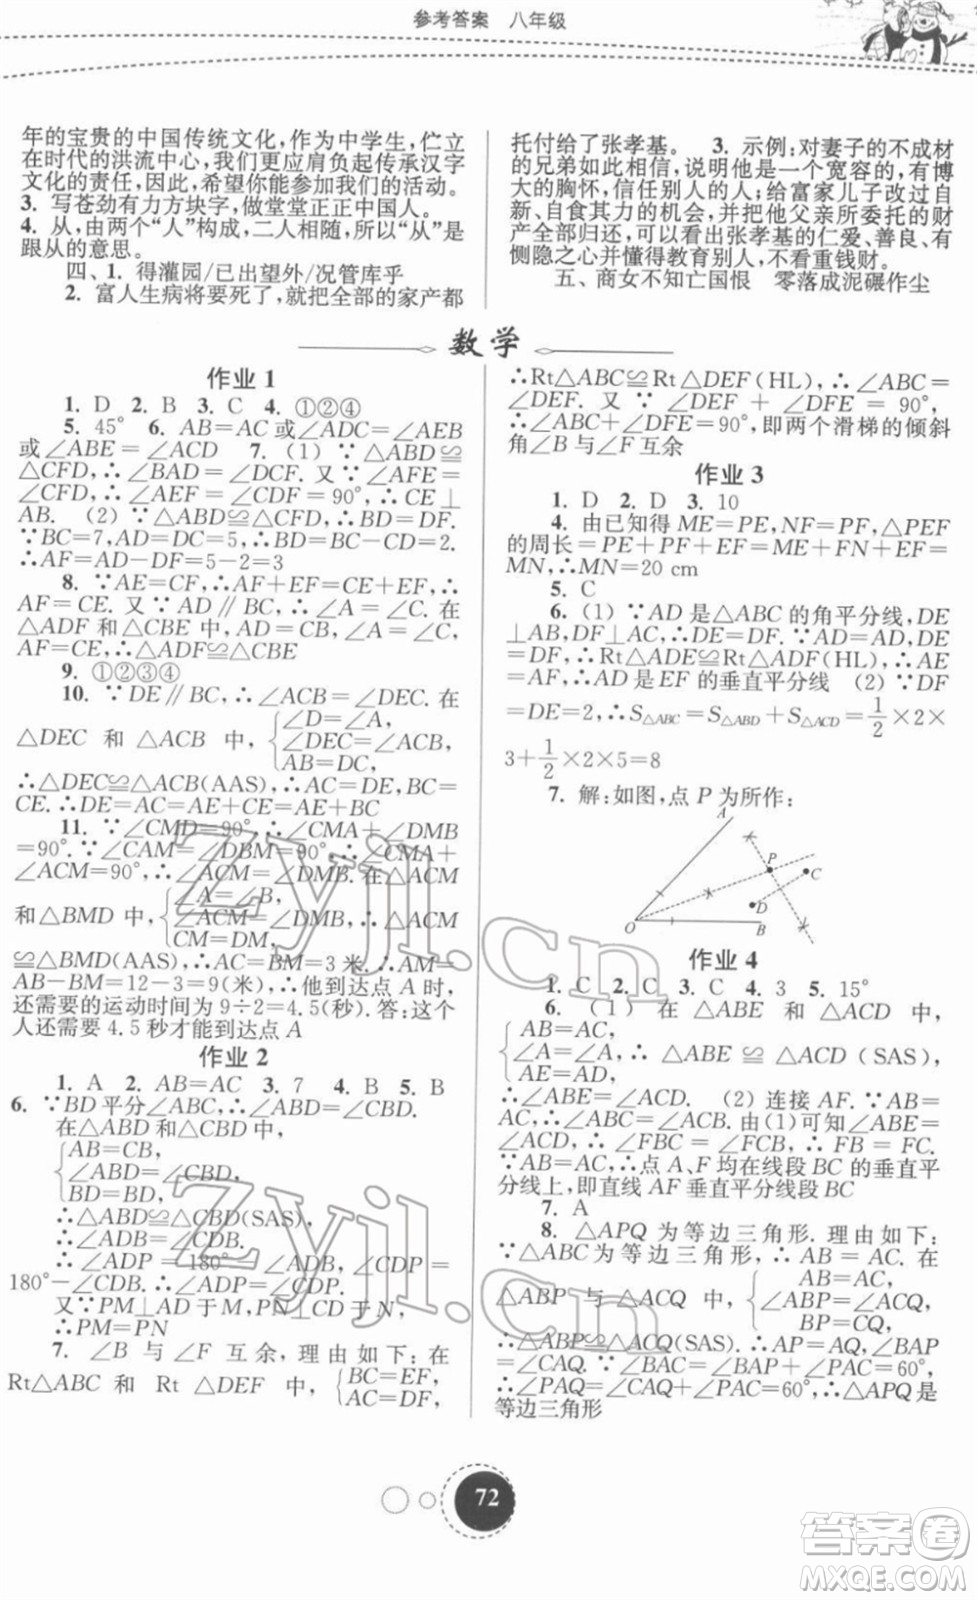 参考答案　八年级
年的宝贵的中国传统文化,作为中学生,伫立
在时代的洪流中心,我们更应肩负起传承汉字
文化的责任,因此,希望你能参加我们的活动。
3. 写苍劲有力方块字,做堂堂正正中国人。
4. 从,由两个“人”构成,二人相随,所以“从”是
跟从的意思。
四、1. 得灌园/已出望外/况管库乎
2. 富人生病将要死了,就把全部的家产都
托付给了张孝基。　3. 示例:对妻子的不成材
的兄弟如此相信,说明他是一个宽容的,有博
大的胸怀,信任别人的人;给富家儿子改过自
新、自食其力的机会,并把他父亲所委托的财
产全部归还,可以看出张孝基的仁爱、善良、有
恻隐之心并懂得教育别人,不看重钱财。
五、商女不知亡国恨　零落成泥碾作尘
数学
作业 1
1. D　2. B　3. C　4. ①②④
5. 45°　6. AB=AC 或∠ADC=∠AEB
或∠ABE=∠ACD　7. (1) ∵△ABD≌
△CFD,∴∠BAD=∠DCF. 又∵∠AFE=
∠CFD,∴∠AEF=∠CDF=90°,∴CE⊥
AB. (2) ∵△ABD≌△CFD,∴BD=DF.
∵BC=7,AD=DC=5,∴BD=BC-CD=2.
∴AF=AD-DF=5-2=3
8. ∵AE=CF,∴AF+EF=CE+EF,∴
AF=CE. 又∵AD∥BC,∴∠A=∠C. 在
△ADF 和△CBE 中,AD=CB,∠A=∠C,
AF=CE,∴△ADF≌△CBE
9. ①②③④
10. ∵DE∥BC,∴∠ACB=∠DEC. 在
∠D=∠A,
△DEC 和 △ACB 中,∠DEC=∠ACB,
AB=DC,
∴△DEC≌△ACB(AAS),∴DE=AC,BC=
CE. ∴DE=AC=AE+CE=AE+BC
11. ∵∠CMD=90°,∴∠CMA+∠DMB
=90°. ∵∠CAM=∠DBM=90°,∴∠CMA+
∠ACM=90°,∴∠ACM=∠DMB. 在△ACM
∠A=∠B,
和△BMD 中,∠ACM=∠DMB,∴△ACM
CM=DM,
≌△BMD(AAS),∴AC=BM=3 米,∴AM=
AB-BM=12-3=9(米),∴他到达点 A 时,
还需要的运动时间为 9÷2=4.5(秒). 答:这个
人还需要 4.5 秒才能到达点 A
作业 2
1. A　2. AB=AC　3. 7　4. B　5. B
6. ∵BD 平分∠ABC,∴∠ABD=∠CBD.
在△ABD 和△CBD 中,
AB=CB,
∠ABD=∠CBD,
BD=BD,
∴△ABD≌△CBD(SAS),
∴∠ADB=∠CDB.
∴∠ADP=180°-∠ADB,∠CDP=
180°-∠CDB. ∴∠ADP=∠CDP.
又∵PM⊥AD 于 M,PN⊥CD 于 N,
∴PM=PN
7. ∠B 与∠F 互余,理由如下:在
Rt△ABC 和 Rt △DEF 中, BC=EF,
AC=DF,
∴Rt△ABC≌Rt△DEF(HL),∴∠ABC=
∠DEF. 又∵∠DEF+∠DFE=90°,
∴∠ABC+∠DFE=90°,即两个滑梯的倾斜
角∠B 与∠F 互余
作业 3
1. D　2. D　3. 10
4. 由已知得 ME=PE,NF=PF,△PEF
的周长=PE+PF+EF=ME+FN+EF=
MN,∴MN=20 cm
5. C
6. (1) ∵AD 是△ABC 的角平分线,DE
⊥AB,DF⊥AC,∴DE=DF. ∵AD=AD,DE
=DF,∴Rt△ADE≌Rt△ADF(HL),∴AE
=AF,∴AD 是 EF 的垂直平分线　(2) ∵DF
=DE=2,∴S△ABC=S△ABD+S△ACD=1/2×2×
3+1/2×2×5=8
7. 解:如图,点 P 为所作:
A
P
C
D
O
B
作业 4
1. C　2. C　3. C　4. 3　5. 15°
6. (1) 在 △ABE 和 △ACD 中,
AB=AC,
∠A=∠A,∴△ABE≌△ACD(SAS),
AE=AD,
∴∠ABE=∠ACD. (2) 连接 AF. ∵AB=
AC,∴∠ABC=∠ACB. 由(1)可知∠ABE=
∠ACD,∴∠FBC=∠FCB,∴FB=FC.
∵AB=AC,∴点 A、F 均在线段 BC 的垂直平
分线上,即直线 AF 垂直平分线段 BC
7. A
8. △APQ 为等边三角形. 理由如下:
∵△ABC 为等边三角形,∴AB=AC. 在
AB=AC,
△ABP 与 △ACQ 中,∠ABP=∠ACQ,
BP=CQ,
∴△ABP≌△ACQ(SAS). ∴AP=AQ,∠BAP
=∠CAQ. ∵∠BAC=∠BAP+∠PAC=60°,
∴∠PAQ=∠CAQ+∠PAC=60°,∴△APQ 是
等边三角形
72
zyjl.cn
zyjl.cn
答案卷
MXQE.COM